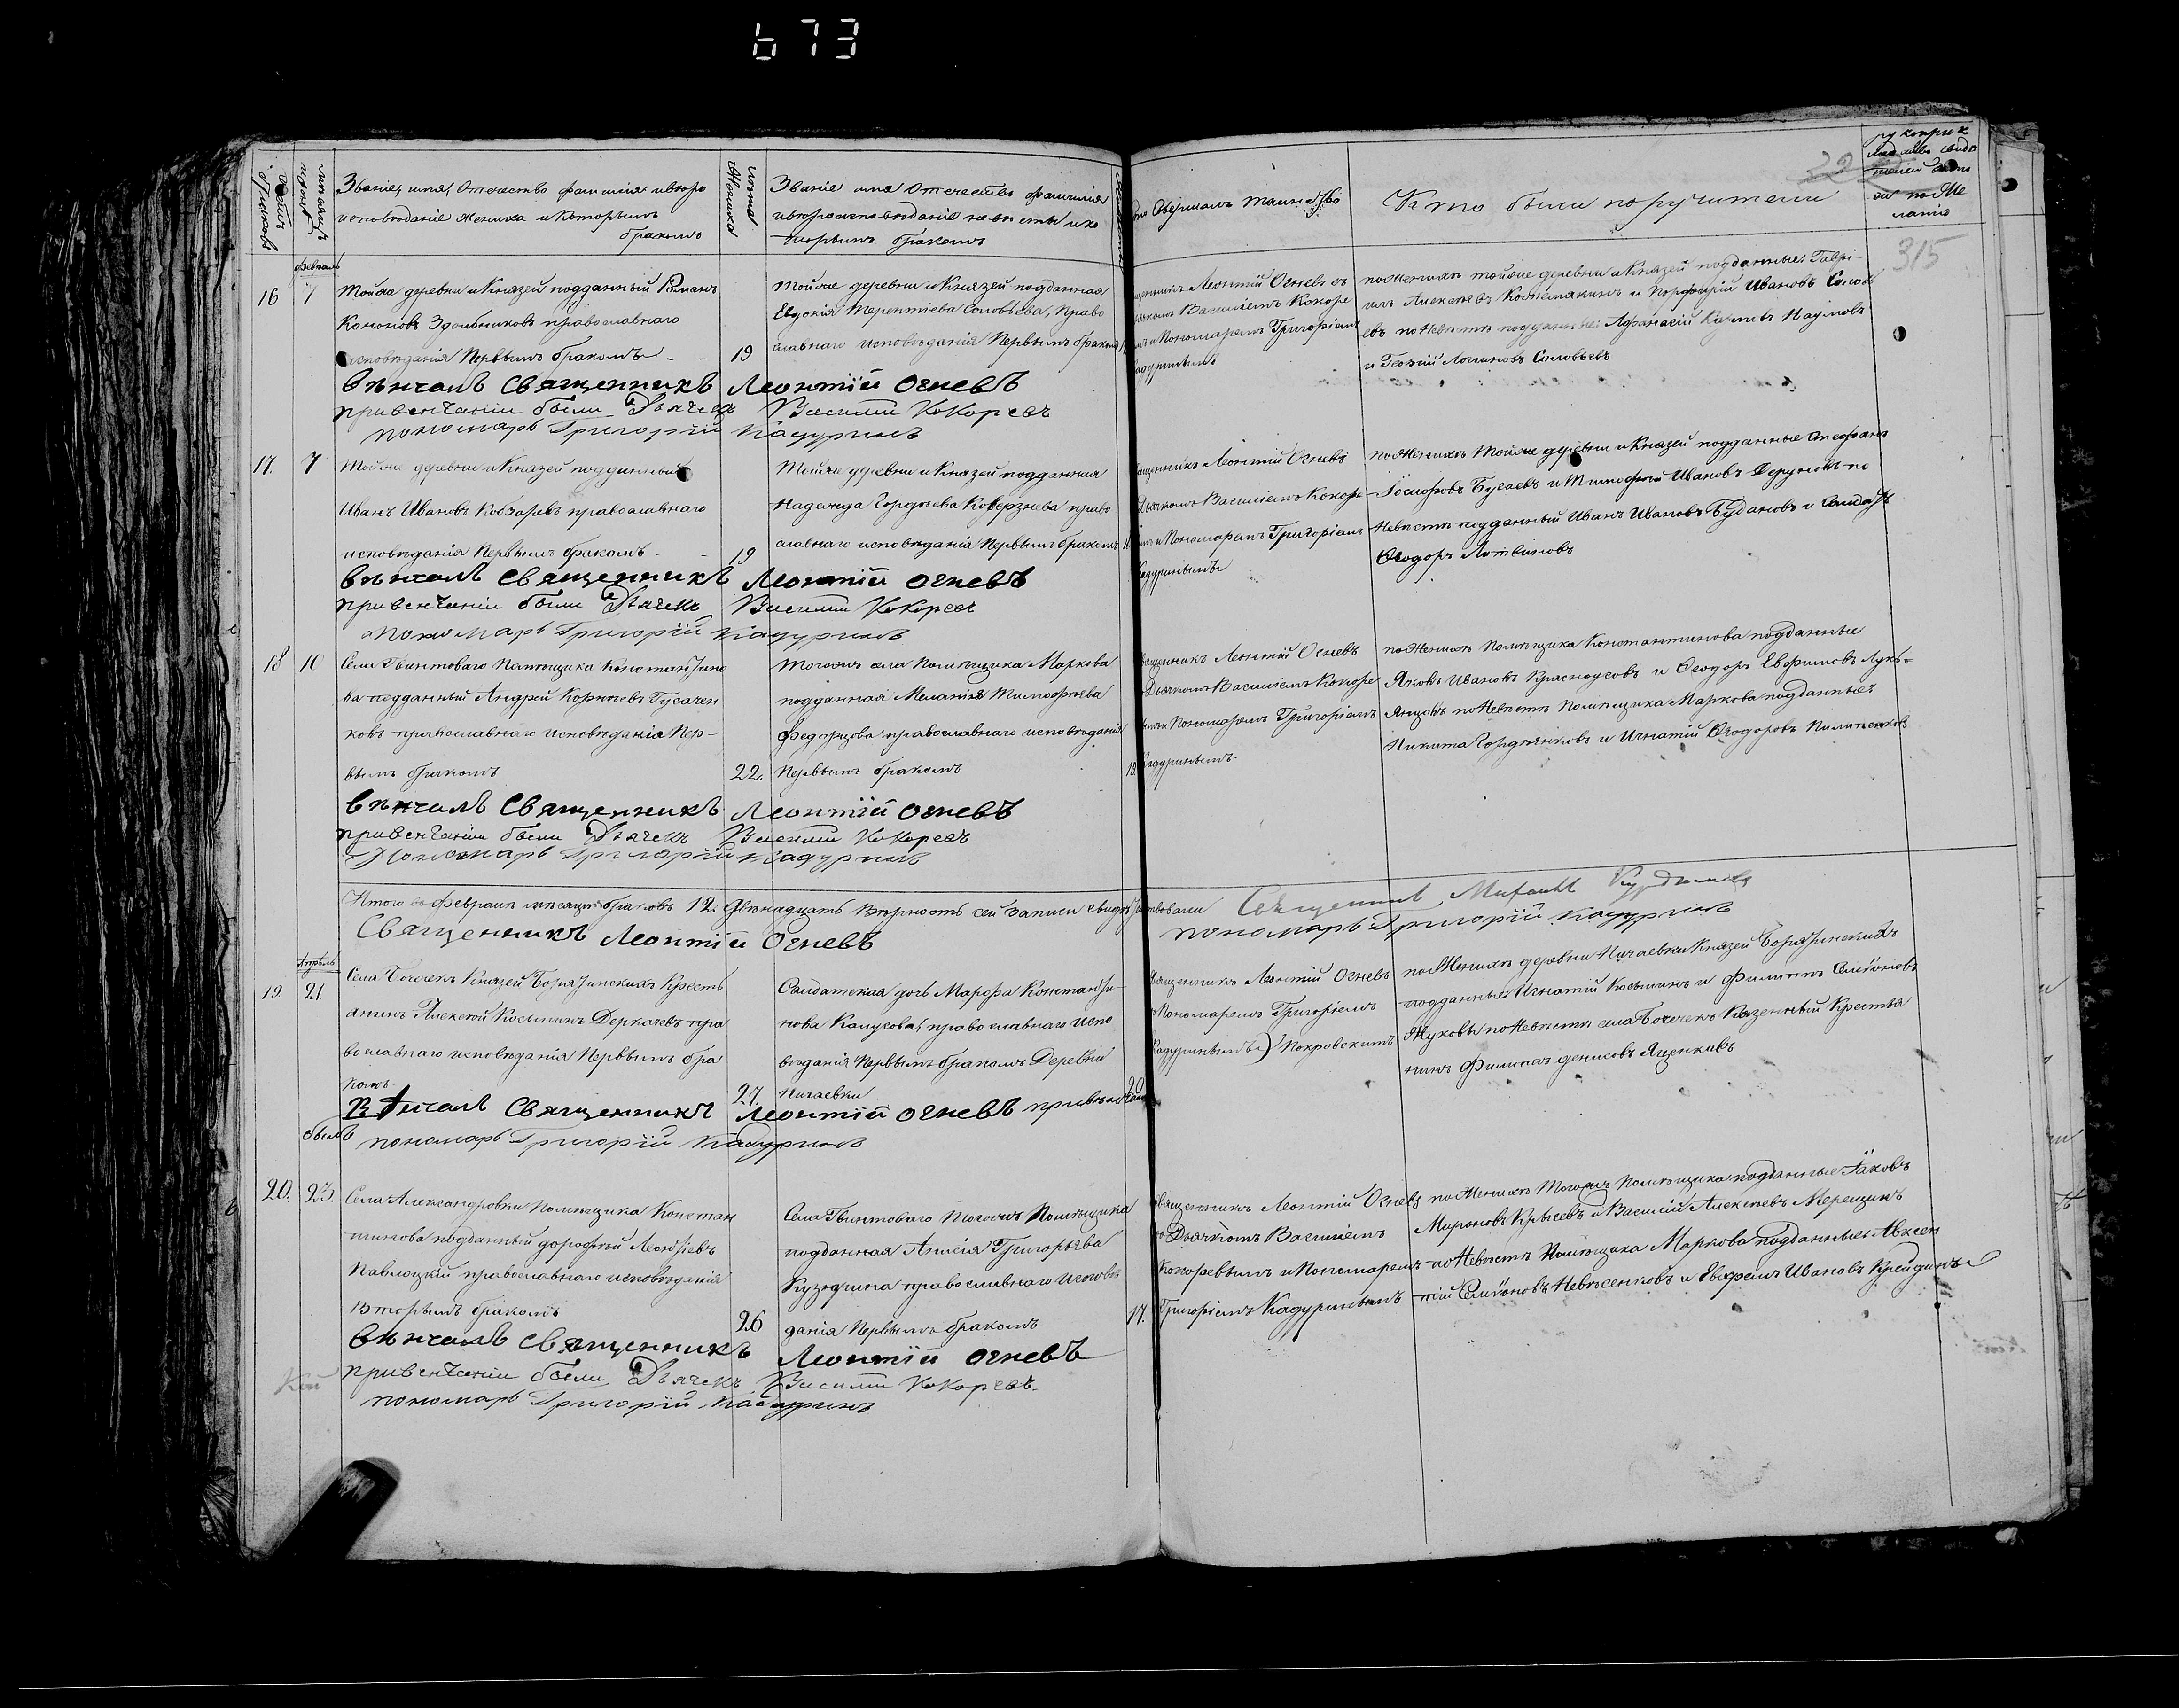 673
счетъ браковъ
мѣсяцъ и число
Званіе, имя, Отечество фамилія ивѣро
исповѣданіе жениха и Которымъ
бракомъ
лѣта Жениха
Званіе имя Отечество фамилія
ивѣроисповѣданіе невѣсты и ко
торымъ бракомъ
Совершалъ таинство
Кто были поручители
315
февраль
16 7 Тойже деревни и Князей подданный Романъ
Кононовъ Здольниковъ православнаго
исповѣданія Первымъ бракомъ
19
Тойже деревни и Князей подданная
Евдокія Терентіева Соловьева, Право
славнаго исповѣданія Первымъ бракомъ
Леонтій Огневъ съ
Василіемъ Кокоре
и Пономаремъ Григоріемъ
Кадуринымъ
поЖенихѣ тойже деревни и Князей подданные: Гаврі-
илъ Алексѣевъ и Порфирій Ивановъ Солов
евъ поНевѣстѣ подданные: Афанасій Наумовъ
и Логиновъ Соловьевъ
вѣнчалъ Священникъ Леонтій Огневъ
привенчаніи были Дьячекъ Василій Кокоревъ
пономарь Григорій Кадуринъ
17. 7 Тойже деревни и Князей подданный
Иванъ Ивановъ Кобзаревъ православнаго
исповѣданія Первымъ бракомъ
19
Тойже деревни и Князей подданная
Надежда Гордѣева Коверзнева право
славнаго исповѣданія Первымъ бракомъ
Священникъ Леонтій Огневъ
Дьячкомъ Василіемъ Кокоре
и Пономаремъ Григоріемъ
Кадуринымъ
поЖенихѣ Тойже деревни и Князей подданные Стефанъ
Іосифовъ Бугаевъ и Тимофей Ивановъ по
Невѣстѣ подданный Иванъ Ивановъ Будановъ и Солдатъ
Ѳеодоръ Литвиновъ
вѣнчалъ Священникъ Леонтій Огневъ
привенчаніи были Дьячекъ Василій Кокоревъ
пономарь Григорій Кадуринъ
18 10 Села Гвинтоваго Помѣщика Константино
ва подданный Андрей Корнѣевъ Гусачен
ковъ православнаго исповѣданія Пер-
вымъ бракомъ
22.
Тогожъ села Помѣщика Маркова
подданная Меланія Тимофѣева
Федорцова православнаго исповѣданія
Первымъ бракомъ
Священникъ Леонтій Огневъ
Дьячкомъ Василіемъ Кокоре
и Пономаремъ Григоріемъ
Кадуринымъ.
поЖенихѣ Помѣщика Константинова подданные
Яковъ Ивановъ Красноусовъ и Ѳеодоръ Евфимовъ Лукь-
янцовъ поНевѣстѣ Помѣщика Маркова подданные
Никита Гордѣенковъ и Игнатій Ѳеодоровъ Пилипенковъ
вѣнчалъ Священникъ Леонтій Огневъ
привенчаніи были Дьячекъ Василій Кокоревъ
Пономарь Григорій Кадуринъ
Итого въ Февралѣ мѣсяцѣ браковъ 12. двѣнадцать Вѣрность сей записи свидѣтельствовали
Священникъ Леонтій Огневъ
Священникъ
пономарь Григорій Кадуринъ
Апрѣль
19. 21 Села Бочечекъ Князей Борятинскихъ Кресть
янинъ Алексѣй Косьминъ Деркачевъ пра
вославнаго исповѣданія Первымъ бра
комъ
27.
Солдатская дочь Марфа Константи-
нова Калусова, православнаго испо
вѣданія Первымъ бракомъ Деревни
Ничаевки
20
Священникъ Леонтій Огневъ
Пономаремъ Григоріемъ
Кадуринымъ) Покровскимъ
поЖенихѣ деревни Ничаевки Князей Борятинскихъ
подданные Игнатій Косьминъ и Филиппъ Симоновъ
Жуковы поНевѣстѣ села Бочечекъ Казенный Крестья
нинъ Филиппъ денисовъ Яценковъ
Вѣнчалъ Священникъ Леонтій Огневъ привѣнчаніи
былъ пономарь Григорій Кадуринъ
20. 23. Села Александровки Помѣщика Констан
тинова подданный дорофей Леонтіевъ
Павлоцкій православнаго исповѣданія
Вторымъ бракомъ
26
Села Гвинтоваго Тогожъ Помѣщика
подданная Анисія Григорьева
Кузюрина православнаго исповѣ
данія Первымъ бракомъ
17.
Священникъ Леонтій Огневъ
Дьячкомъ Василіемъ
Кокоревымъ и Пономаремъ
Григоріемъ Кадуринымъ
поЖенихѣ Тогожъ Помѣщика подданные Іаковъ
Мироновъ Крысевъ и Василій Алексѣевъ Мерещинъ
поНевѣстѣ Помѣщика Маркова подданные Авксен
тій Симоновъ Невѣсенковъ и Евфремъ Ивановъ Крейдинъ
вѣнчалъ Священникъ Леонтій Огневъ
привенчаніи были Дьячекъ Василій Кокоревъ.
пономарь Григорій Кадуринъ